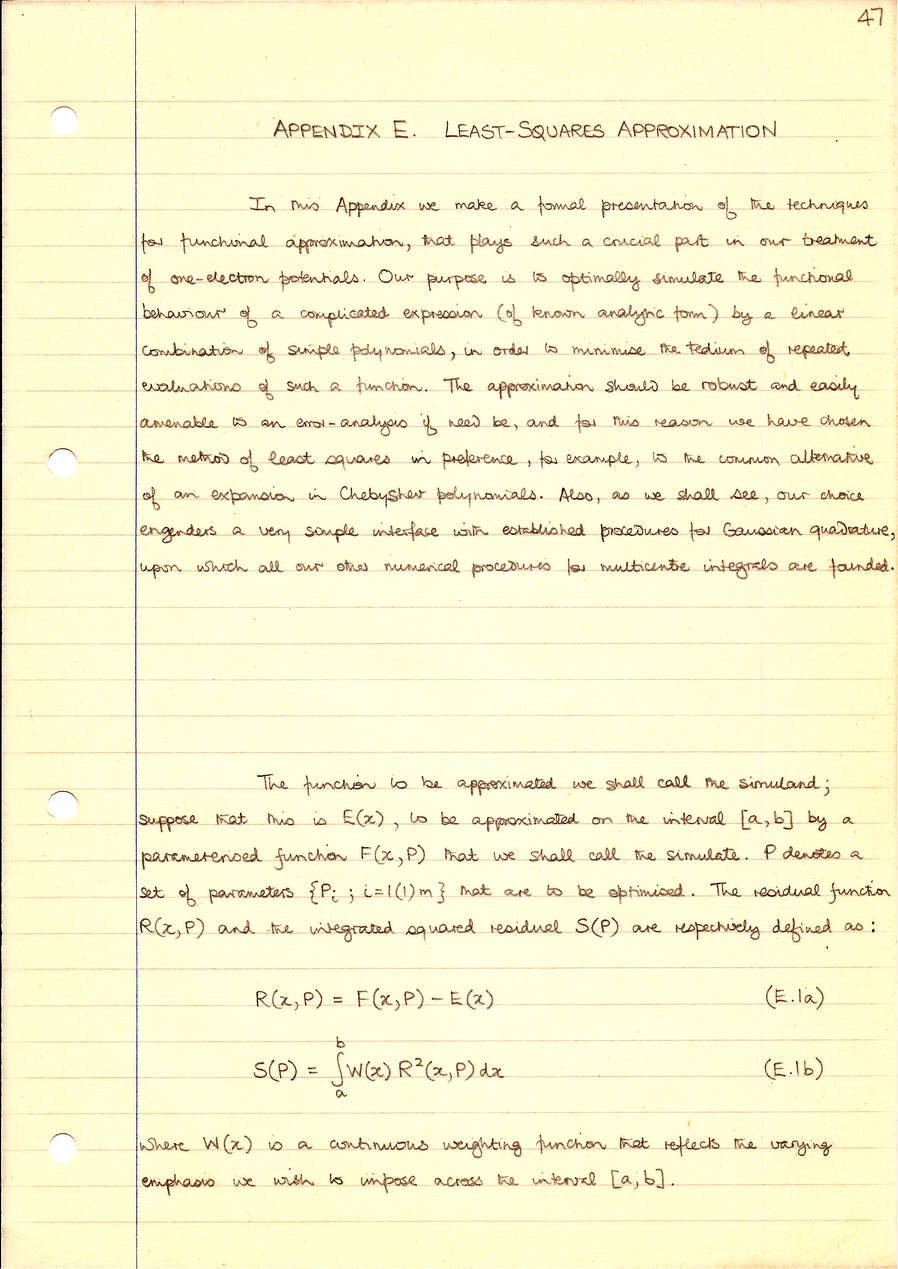 47
APPENDIX E. LEAST-SQUARES APPROXIMATION
In this Appendix we make a formal presentation of the techniques
for functional approximation, that plays such a crucial part in our treatment
of one-electron potentials. Our purpose is to optimally simulate the functional
behaviour of a complicated expression (of known analytic form) by a linear
combination of simple polynomials, in order to minimise the tedium of repeated
evaluations of such a function. The approximation should be robust and easily
amenable to an error-analysis if need be, and for this reason we have chosen
the method of least squares in preference, for example, to the common alternative
of an expansion in Chebyshev polynomials. Also, as we shall see, our choice
engenders a very simple interface with established procedures for Gaussian quadrature,
upon which all our other numerical procedures for multicentre integrals are founded.
The function to be approximated we shall call the simuland;
suppose that this is E(x), to be approximated on the interval [a,b] by a
parameterised function F(x,P) that we shall call the simulate. P denotes a
set of parameters {Pᵢ ; i=1(1)m} that are to be optimised. The residual function
R(x,P) and the integrated squared residual S(P) are respectively defined as:
R(x,P) = F(x,P) − E(x) (E.1a)
S(P) = ∫ₐᵇ W(x) R²(x,P) dx (E.1b)
where W(x) is a continuous weighting function that reflects the varying
emphasis we wish to impose across the interval [a,b].